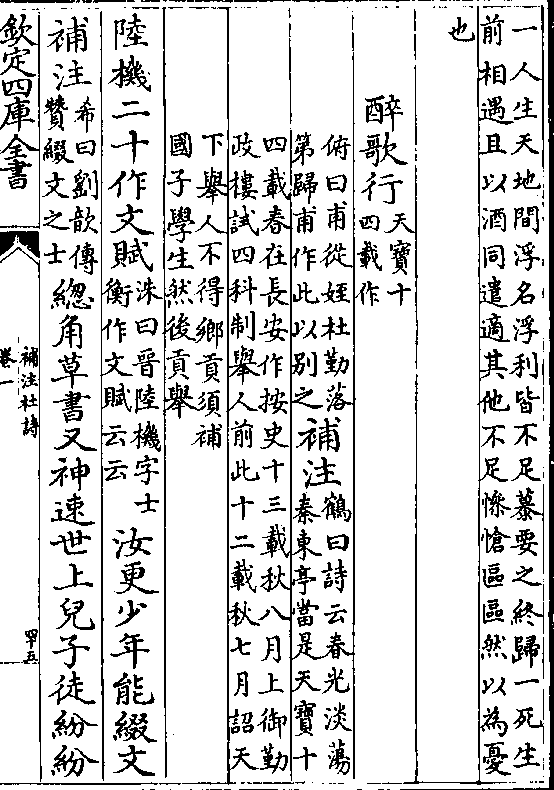 一人生天地間浮名浮利皆不足慕要之終歸一死生
前相遇且以酒同遣適其他不足憭愴區區然以為憂
也
醉歌行天寶十
四載作
俯曰甫從姪杜勤落
第歸甫作此以別之
補注
鶴曰詩云春光淡蕩
秦東亭當是天寶十
四載春在長安作按史十三載秋八月上御勤
政樓試四科制舉人前此十二載秋七月詔天
下舉人不得鄉貢須補
國子學生然後貢舉
陸機二十作文賦
洙曰晉陸機字士
衡作文賦云云
汝更少年能綴文
補注
希曰劉歆傳
贊綴文之士
緫角草書又神速世上兒子徒紛紛
欽定四庫全書
補注杜詩
卷一
四十五